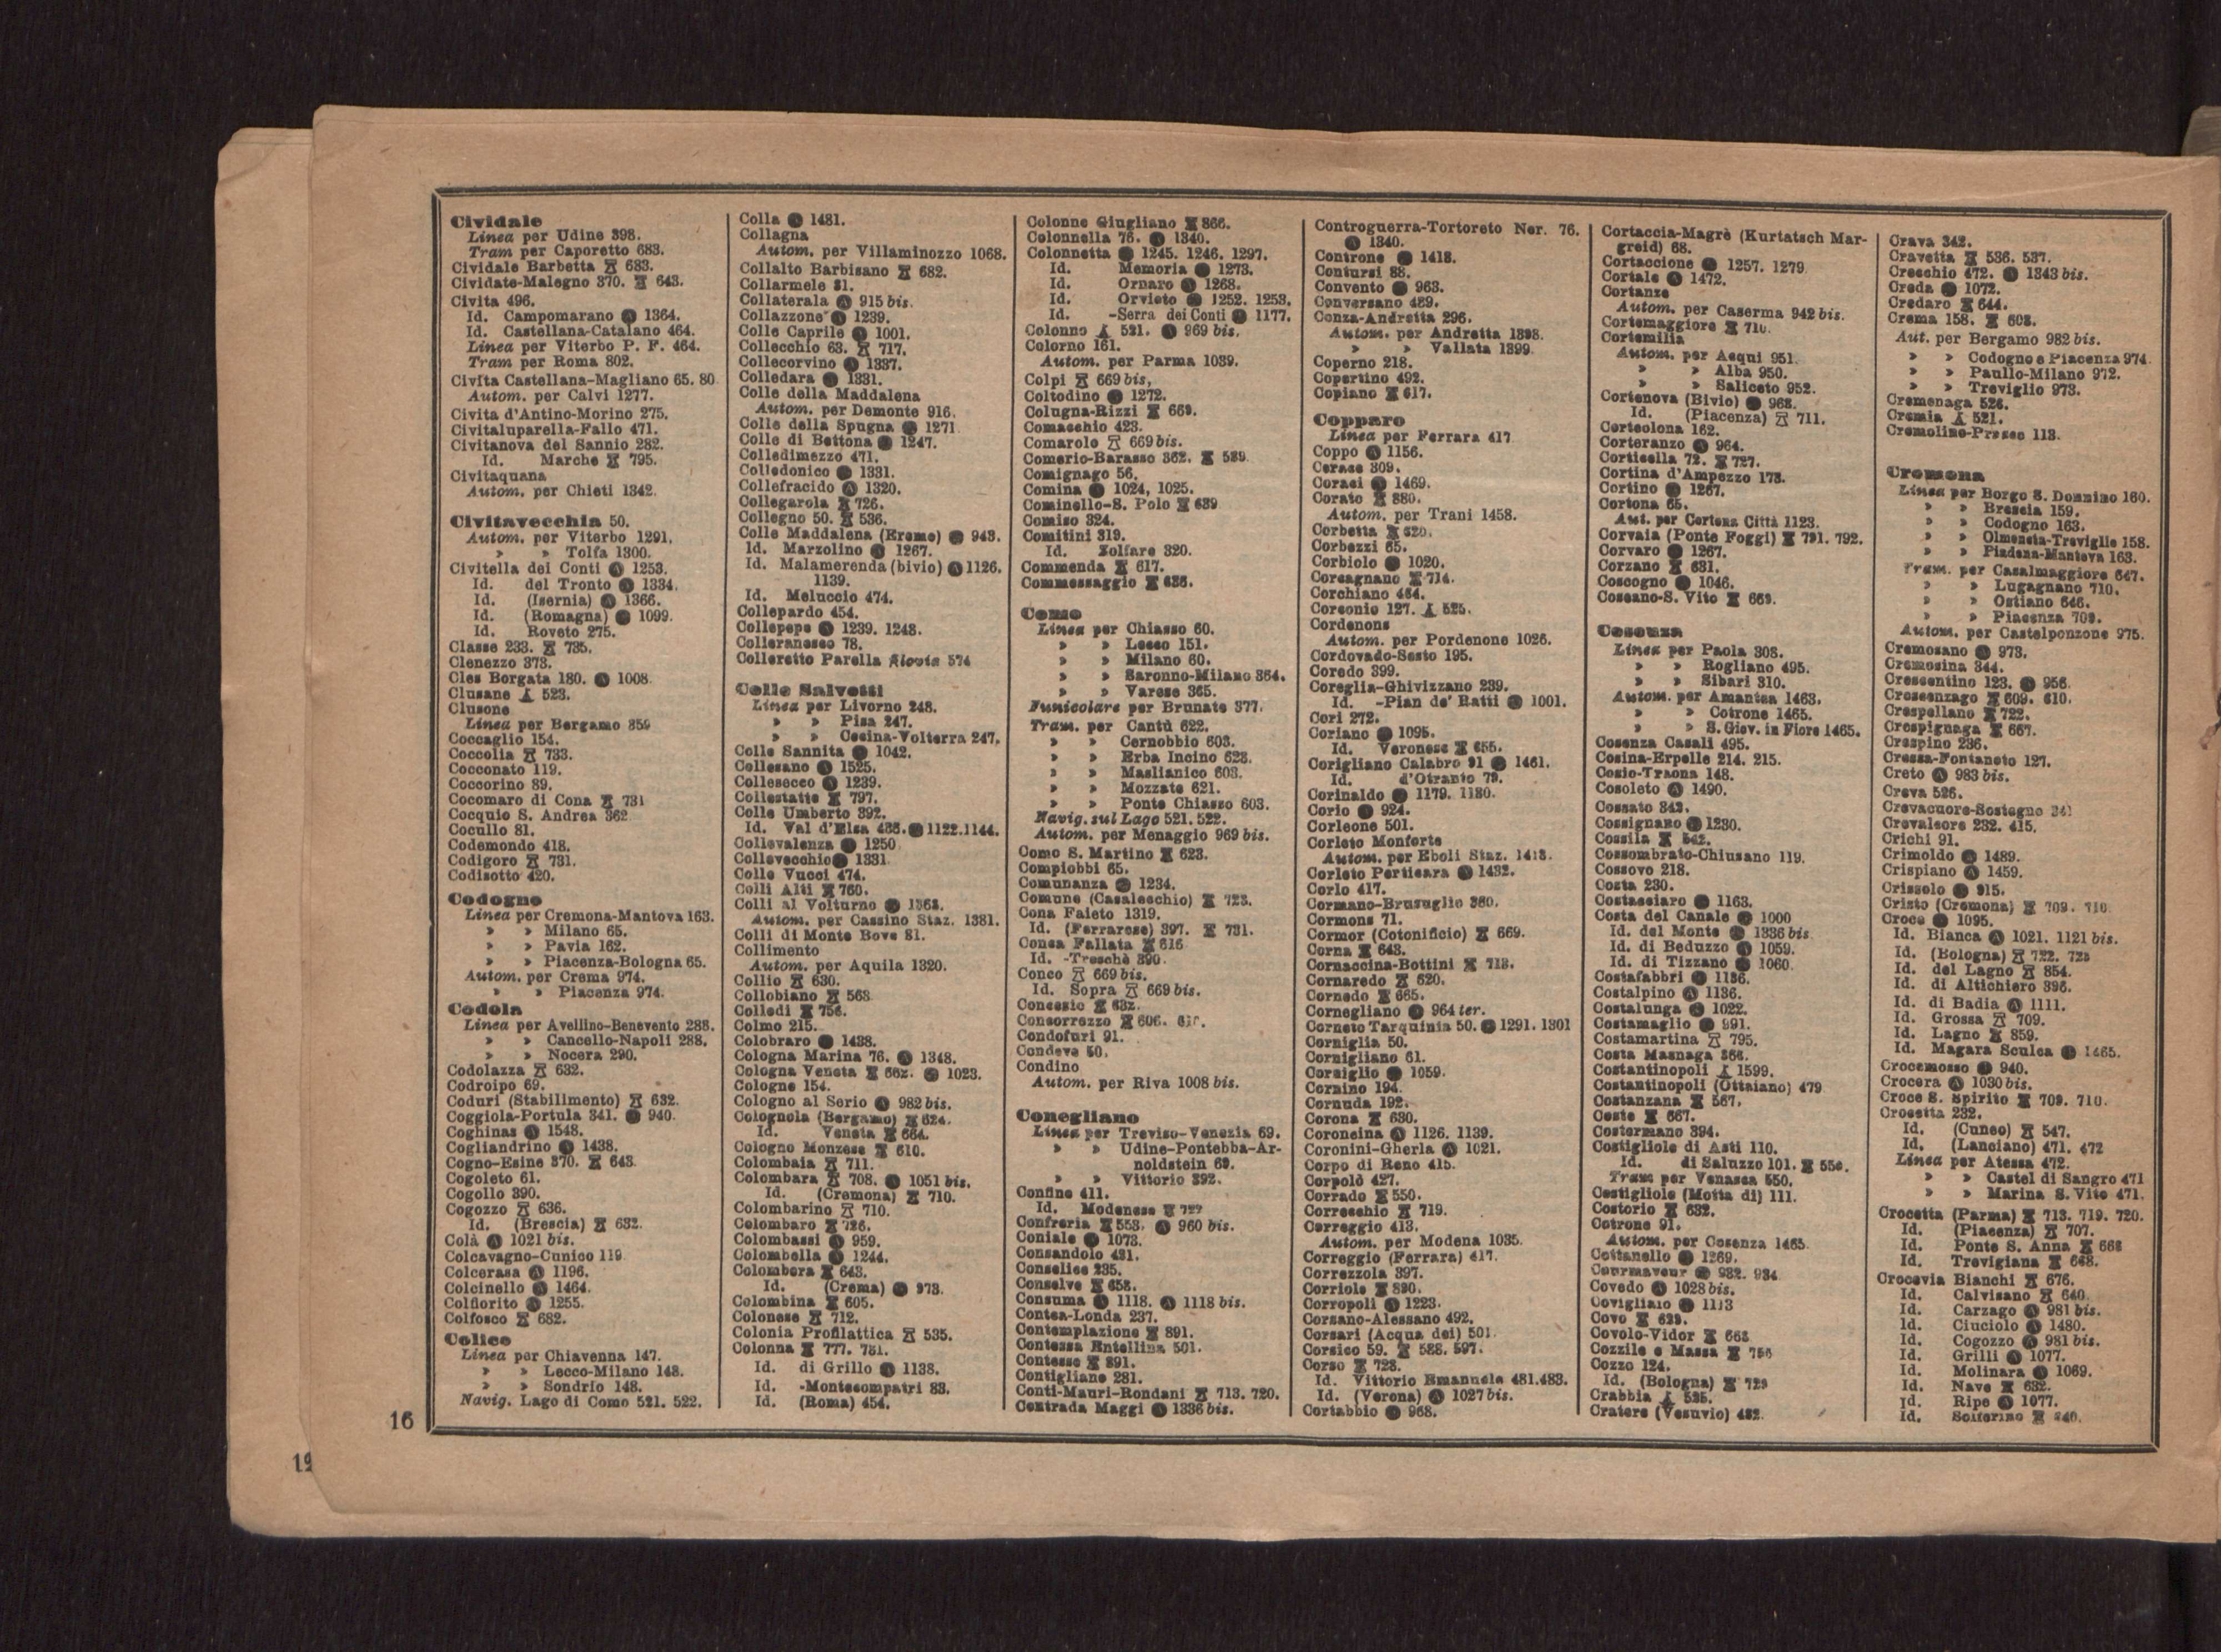 Cividale
Linea per Udine 398.
Tram per Caporetto 683.
Cividale Barbetta 683.
Cividate-Malegno 370. 643.
Civita 496.
Id. Campomarano 1364.
Id. Castellana-Catalano 464.
Linea per Viterbo P. F. 464.
Tram per Roma 802.
Civita Castellana-Magliano 65. 80
Autom. per Calvi 1277.
Civita d'Antino-Morino 275.
Civitaluparella-Fallo 471.
Civitanova del Sannio 282.
Id. Marche 795.
Civitaquana
Autom. per Chieti 1342.
Civitavecchia 50.
Autom. per Viterbo 1291.
» » Tolfa 1300.
Civitella dei Conti Ⓐ 1253.
Id. del Tronto 1334.
Id. (Isernia) Ⓐ 1366.
Id. (Romagna) 1099.
Id. Roveto 275.
Classe 233. 735.
Clenezzo 373.
Cles Borgata 180. Ⓐ 1008
Clusane 523.
Clusone
Linea per Bergamo 359
Coccaglio 154.
Coccolia 733.
Cocconato 119.
Coccorino 89.
Cocomaro di Cona 731
Cocquio S. Andrea 362
Cocullo 81.
Codemondo 418.
Codigoro 731.
Codisotto 420.
Codogno
Linea per Cremona-Mantova 163.
» » Milano 65.
» » Pavia 162.
» » Piacenza-Bologna 65.
Autom. per Crema 974.
» » Piacenza 974.
Codola
Linea per Avellino-Benevento 288.
» » Cancello-Napoli 288.
» » Nocera 290.
Codolazza 632.
Codroipo 69.
Coduri (Stabilimento) 632.
Coggiola-Portula 341. 940.
Coghinas Ⓐ 1548.
Cogliandrino 1438.
Cogno-Esine 370. 643.
Cogoleto 61.
Cogollo 390.
Cogozzo 636.
Id. (Brescia) 632.
Colà Ⓐ 1021 bis.
Colcavagno-Cunico 119
Colcerasa Ⓐ 1196.
Colcinello 1464.
Colfiorito Ⓐ 1255.
Colfosco 682.
Colico
Linea per Chiavenna 147.
» » Lecco-Milano 148.
» » Sondrio 148.
Navig. Lago di Como 521. 522.
Colla 1481.
Collagna
Autom. per Villaminozzo 1068.
Collalto Barbisano 682.
Collarmele 81.
Collaterala Ⓐ 915 bis.
Collazzone Ⓐ 1239.
Colle Caprile 1001.
Collecchio 63. 717.
Collecorvino Ⓐ 1337.
Colledara 1331.
Colle della Maddalena
Autom. per Demonte 916.
Colle della Spugna 1271
Colle di Bettona 1247.
Colledimezzo 471.
Colledonico 1331.
Collefracido Ⓐ 1320.
Collegarola 726.
Collegno 50. 536.
Colle Maddalena (Eremo) 943.
Id. Marzolino 1267.
Id. Malamerenda (bivio) Ⓐ 1126.
1139.
Id. Meluccio 474.
Collepardo 454.
Collepepe 1239. 1248.
Colleranesco 78.
Colleretto Parella 574
Colle Salvetti
Linea per Livorno 248.
» » Pisa 247.
» » Cecina-Volterra 247.
Colle Sannita 1042.
Collesano Ⓐ 1525.
Collesecco Ⓐ 1239.
Collestatte 797.
Colle Umberto 392.
Id. Val d'Elsa 436. 1122. 1144.
Collevalenza 1250
Collevecchio 1331
Colle Vucci 474.
Colli Alti 760.
Colli al Volturno 1368.
Autom. per Cassino Staz. 1381.
Colli di Monte Bove 81.
Collimento
Autom. per Aquila 1320.
Collio 630.
Collobiano 568
Collodi 756.
Colmo 215.
Colobraro 1438.
Cologna Marina 76. Ⓐ 1348.
Cologna Veneta 662. 1023.
Cologne 154.
Cologno al Serio Ⓐ 982 bis.
Colognola (Bergamo) 624.
Id. Veneta 664.
Cologno Monzese 610.
Colombaia 711.
Colombara 708. 1051 bis.
Id. (Cremona) 710.
Colombarino 710.
Colombaro 726.
Colombassi 959.
Colombella 1244.
Colombera 643.
Id. (Crema) 973.
Colombina 605.
Colonese 712.
Colonia Profilattica 535.
Colonna 777. 781.
Id. di Grillo 1138.
Id. -Montecompatri 83.
Id. (Roma) 454.
Colonne Giugliano 866.
Colonnella 76. 1340.
Colonnetta 1245. 1246. 1297.
Id. Memoria 1273.
Id. Ornaro Ⓐ 1268.
Id. Orvieto 1252. 1253.
Id. -Serra dei Conti 1177.
Colonno 521. 969 bis.
Colorno 161.
Autom. per Parma 1039.
Colpi 669 bis,
Coltodino 1272.
Colugna-Rizzi 669.
Comacchio 423.
Comarolo 669 bis.
Comerio-Barasso 362. 589
Comignago 56.
Comina 1024, 1025.
Cominello-S. Polo 639
Comiso 324.
Comitini 319.
Id. Zolfare 320.
Commenda 617.
Commessaggio 636.
Como
Linea per Chiasso 60.
» » Lecco 151.
» » Milano 60.
» » Saronno-Milano 364.
» » Varese 365.
Funicolare per Brunate 377.
Tram. per Cantù 622.
» » Cernobbio 603.
» » Erba Incino 623.
» » Maslianico 603.
» » Mozzate 621.
» » Ponte Chiasso 603.
Navig. sul Lago 521. 522.
Autom. per Menaggio 969 bis.
Como S. Martino 623.
Compiobbi 65.
Comunanza 1234.
Comune (Casalecchio) 723.
Cona Faleto 1319.
Id. (Ferrarese) 397. 731.
Conca Fallata 616
Id. -Treschè 390.
Conco 669 bis.
Id. Sopra 669 bis.
Concesio 632.
Concorrezzo 606.
Condofuri 91.
Condove 50.
Condino
Autom. per Riva 1008 bis.
Conegliano
Linea per Treviso-Venezia 69.
» » Udine-Pontebba-Ar-
noldstein 69.
» » Vittorio 392.
Confine 411.
Id. Modenese 727
Confreria 553. Ⓐ 960 bis.
Coniale 1073.
Consandolo 431.
Conselice 235.
Conselve 658.
Consuma 1118. Ⓐ 1118 bis.
Contea-Londa 237.
Contemplazione 891.
Contessa Entellina 501.
Contesse 891.
Contigliano 281.
Conti-Mauri-Rondani 713. 720.
Contrada Maggi 1336 bis.
Controguerra-Tortoreto Ner. 76.
Ⓐ 1340.
Controne 1418.
Contursi 88.
Convento 963.
Conversano 489.
Conza-Andretta 296.
Autom. per Andretta 1398.
» » Vallata 1399.
Coperno 218.
Copertino 492.
Copiano 617.
Copparo
Linea per Ferrara 417
Coppo Ⓐ 1156.
Corace 309.
Coraci 1469.
Corato 880.
Autom. per Trani 1458.
Corbetta 620.
Corbezzi 65.
Corbiolo 1020.
Corcagnano 714.
Corchiano 464.
Corconio 127. 525.
Cordenons
Autom. per Pordenone 1026.
Cordovado-Sesto 195.
Coredo 399.
Coreglia-Ghivizzano 239.
Id. -Pian de' Ratti 1001.
Cori 272.
Coriano 1095.
Id. Veronese 655.
Corigliano Calabro 91 1461.
Id. d'Otranto 79.
Corinaldo 1179. 1180.
Corio 924.
Corleone 501.
Corleto Monforte
Autom. per Eboli Staz. 1418.
Corleto Perticara Ⓐ 1432.
Corlo 417.
Cormano-Brusuglio 380.
Cormons 71.
Cormor (Cotonificio) 669.
Corna 643.
Cornaccina-Bottini 718.
Cornaredo 620.
Cornedo 665.
Cornegliano 964 ter.
Corneto Tarquinia 50. 1291. 1301
Corniglia 50.
Cornigliano 61.
Corniglio 1059.
Cornino 194.
Cornuda 192.
Corona 630.
Coroncina Ⓐ 1126. 1139.
Coronini-Gherla Ⓐ 1021.
Corpo di Reno 415.
Corpolò 427.
Corrado 550.
Correcchio 719.
Correggio 413.
Autom. per Modena 1035.
Correggio (Ferrara) 417.
Correzzola 397.
Corriolo 890.
Corropoli Ⓐ 1223.
Corsano-Alessano 492.
Corsari (Acqua dei) 501.
Corsico 59. 588. 597.
Corso 728.
Id. Vittorio Emanuele 481. 483.
Id. (Verona) Ⓐ 1027 bis.
Cortabbio 968.
Cortaccia-Magrè (Kurtatsch Mar-
greid) 68.
Cortaccione 1257. 1279
Cortale Ⓐ 1472.
Cortanze
Autom. per Caserma 942 bis.
Cortemaggiore 710.
Cortemilia
Autom. per Acqui 951.
» » Alba 950.
» » Saliceto 952.
Cortenova (Bivio) 968.
Id. (Piacenza) 711.
Corteolona 162.
Corteranzo Ⓐ 964.
Corticella 72. 727.
Cortina d'Ampezzo 173.
Cortino 1267.
Cortona 65.
Aut. per Cortona Città 1123.
Corvaia (Ponte Foggi) 791. 792.
Corvaro 1267.
Corzano 631.
Coscogno 1046.
Coseano-S. Vito 669.
Cosenza
Linea per Paola 308.
» » Rogliano 495.
» » Sibari 310.
Autom. per Amantea 1463.
» » Cotrone 1465.
» » S. Giov. in Fiore 1465.
Cosenza Casali 495.
Cosina-Erpelle 214. 215.
Cosio-Traona 148.
Cosoleto Ⓐ 1490.
Cossato 342.
Cossignano 1230.
Cossila 542.
Cossombrato-Chiusano 119.
Cossovo 218.
Costa 230.
Costacciaro 1163.
Costa del Canale 1000
Id. del Monte 1336 bis
Id. di Beduzzo 1059.
Id. di Tizzano 1060.
Costafabbri 1136.
Costalpino Ⓐ 1136.
Costalunga 1022.
Costamaglio 991.
Costamartina 795.
Costa Masnaga 366.
Costantinopoli 1599.
Costantinopoli (Ottaiano) 479
Costanzana 567.
Coste 667.
Costermano 394.
Costigliole di Asti 110.
Id. di Saluzzo 101. 550.
Tram per Venasca 550.
Costigliole (Motta di) 111.
Costorio 632.
Cotrone 91.
Autom. per Cosenza 1465
Cottanello 1269.
Courmayeur 932. 934
Covedo Ⓐ 1028 bis.
Covigliaio 1113
Covo 629.
Covolo-Vidor 668
Cozzile e Massa 756
Cozzo 124.
Id. (Bologna) 729
Crabbia 525.
Cratere (Vesuvio) 482
Crava 342.
Cravetta 536. 537.
Crecchio 472. 1343 bis.
Creda 1072.
Credaro 644.
Crema 158. 608.
Aut. per Bergamo 982 bis.
» » Codogno e Piacenza 974.
» » Paullo-Milano 972.
» » Treviglio 973.
Cremenaga 526.
Cremia 521.
Cremolino-Prasco 113.
Cremona
Linea per Borgo S. Donnino 160.
» » Brescia 159.
» » Codogno 163.
» » Olmeneta-Treviglio 158.
» » Piadena-Mantova 163.
Tram. per Casalmaggiore 647.
» » Lugagnano 710.
» » Ostiano 646.
» » Piacenza 709.
Autom. per Castelponzone 975.
Cremosano 973.
Cremosina 344.
Crescentino 123. 956
Crescenzago 609. 610.
Crespellano 722.
Crespignaga 667.
Crespino 236.
Cressa-Fontaneto 127.
Creto Ⓐ 983 bis.
Creva 526.
Crevacuore-Sostegno 341
Crevalcore 232. 415.
Crichi 91.
Crimoldo Ⓐ 1489.
Crispiano Ⓐ 1459.
Crissolo 915.
Cristo (Cremona) 709. 710
Croce 1095.
Id. Bianca Ⓐ 1021. 1121 bis.
Id. (Bologna) 722. 723
Id. del Lagno 854.
Id. di Altichiero 396.
Id. di Badia Ⓐ 1111.
Id. Grossa 709.
Id. Lagno 859.
Id. Magara Sculca 1465.
Crocemosso 940.
Crocera Ⓐ 1030 bis.
Croce S. Spirito 709. 710.
Crocetta 232.
Id. (Cuneo) 547.
Id. (Lanciano) 471. 472
Linea per Atessa 472.
» » Castel di Sangro 471
» » Marina S. Vito 471.
Crocetta (Parma) 713. 719. 720.
Id. (Piacenza) 707.
Id. Ponte S. Anna 668
Id. Trevigiana 668.
Crocevia Bianchi 676.
Id. Calvisano 640
Id. Carzago Ⓐ 981 bis.
Id. Ciuciolo Ⓐ 1480.
Id. Cogozzo Ⓐ 981 bis.
Id. Grilli Ⓐ 1077.
Id. Molinara 1069.
Id. Nave 632.
Id. Ripe Ⓐ 1077.
Id. Solferino 640.
16
19